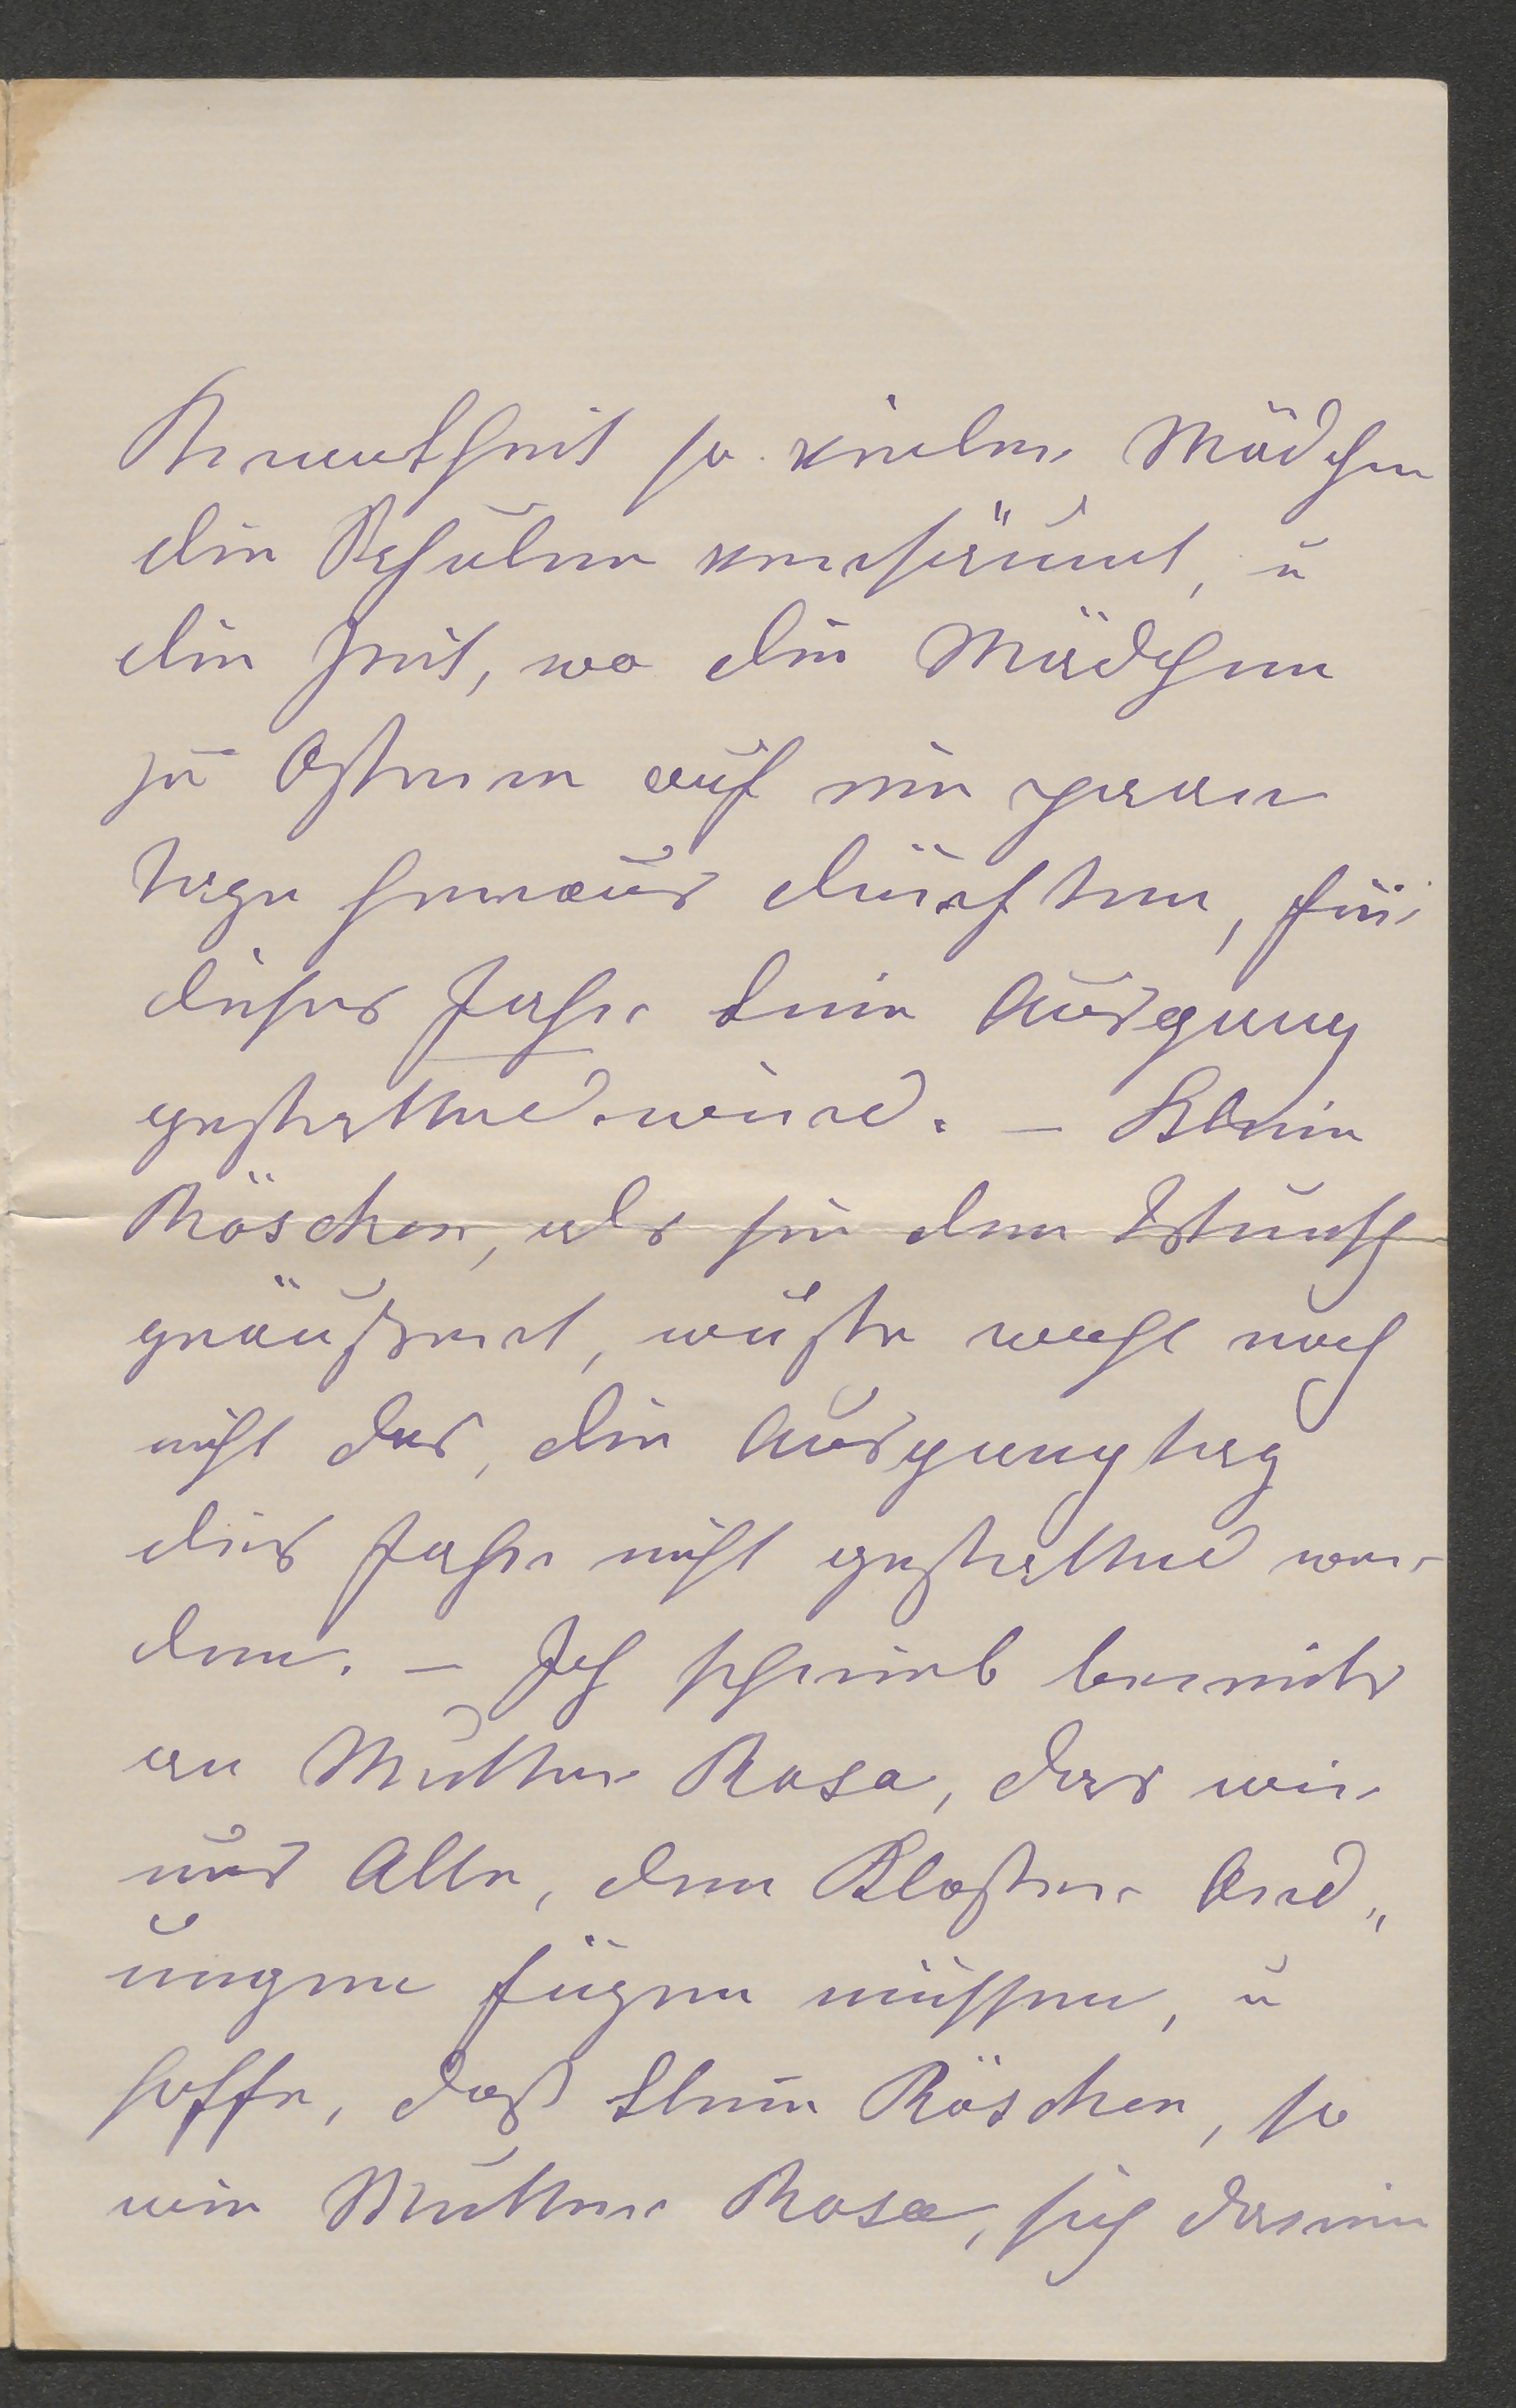 Krankheit so vieler Mädchen
die Schulen versäumt, u
die Zeit, wo die Mädchen
zu Ostern auf ein paar
tage heraus dürften, für
dieses Jahr kein Ausgang
gestatted wird. – Klein
Röschen, als sie den Wunsch
geäußert, wuste wohl noch
nicht das, die Ausgangtag
dies Jahr nicht gestatted wer-
den. – Ich schrieb bereits
an Mutter Rosa, das wir
uns Alle, den Kloster Ord„
ungen fügen müssen, u
hoffe, daß klein Röschen, so
wie Mutter Rosa, sich darein